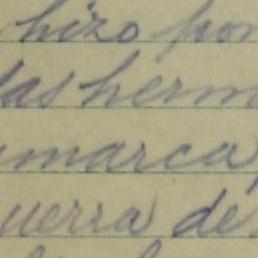 hizo por
las herm
marca
uerra de